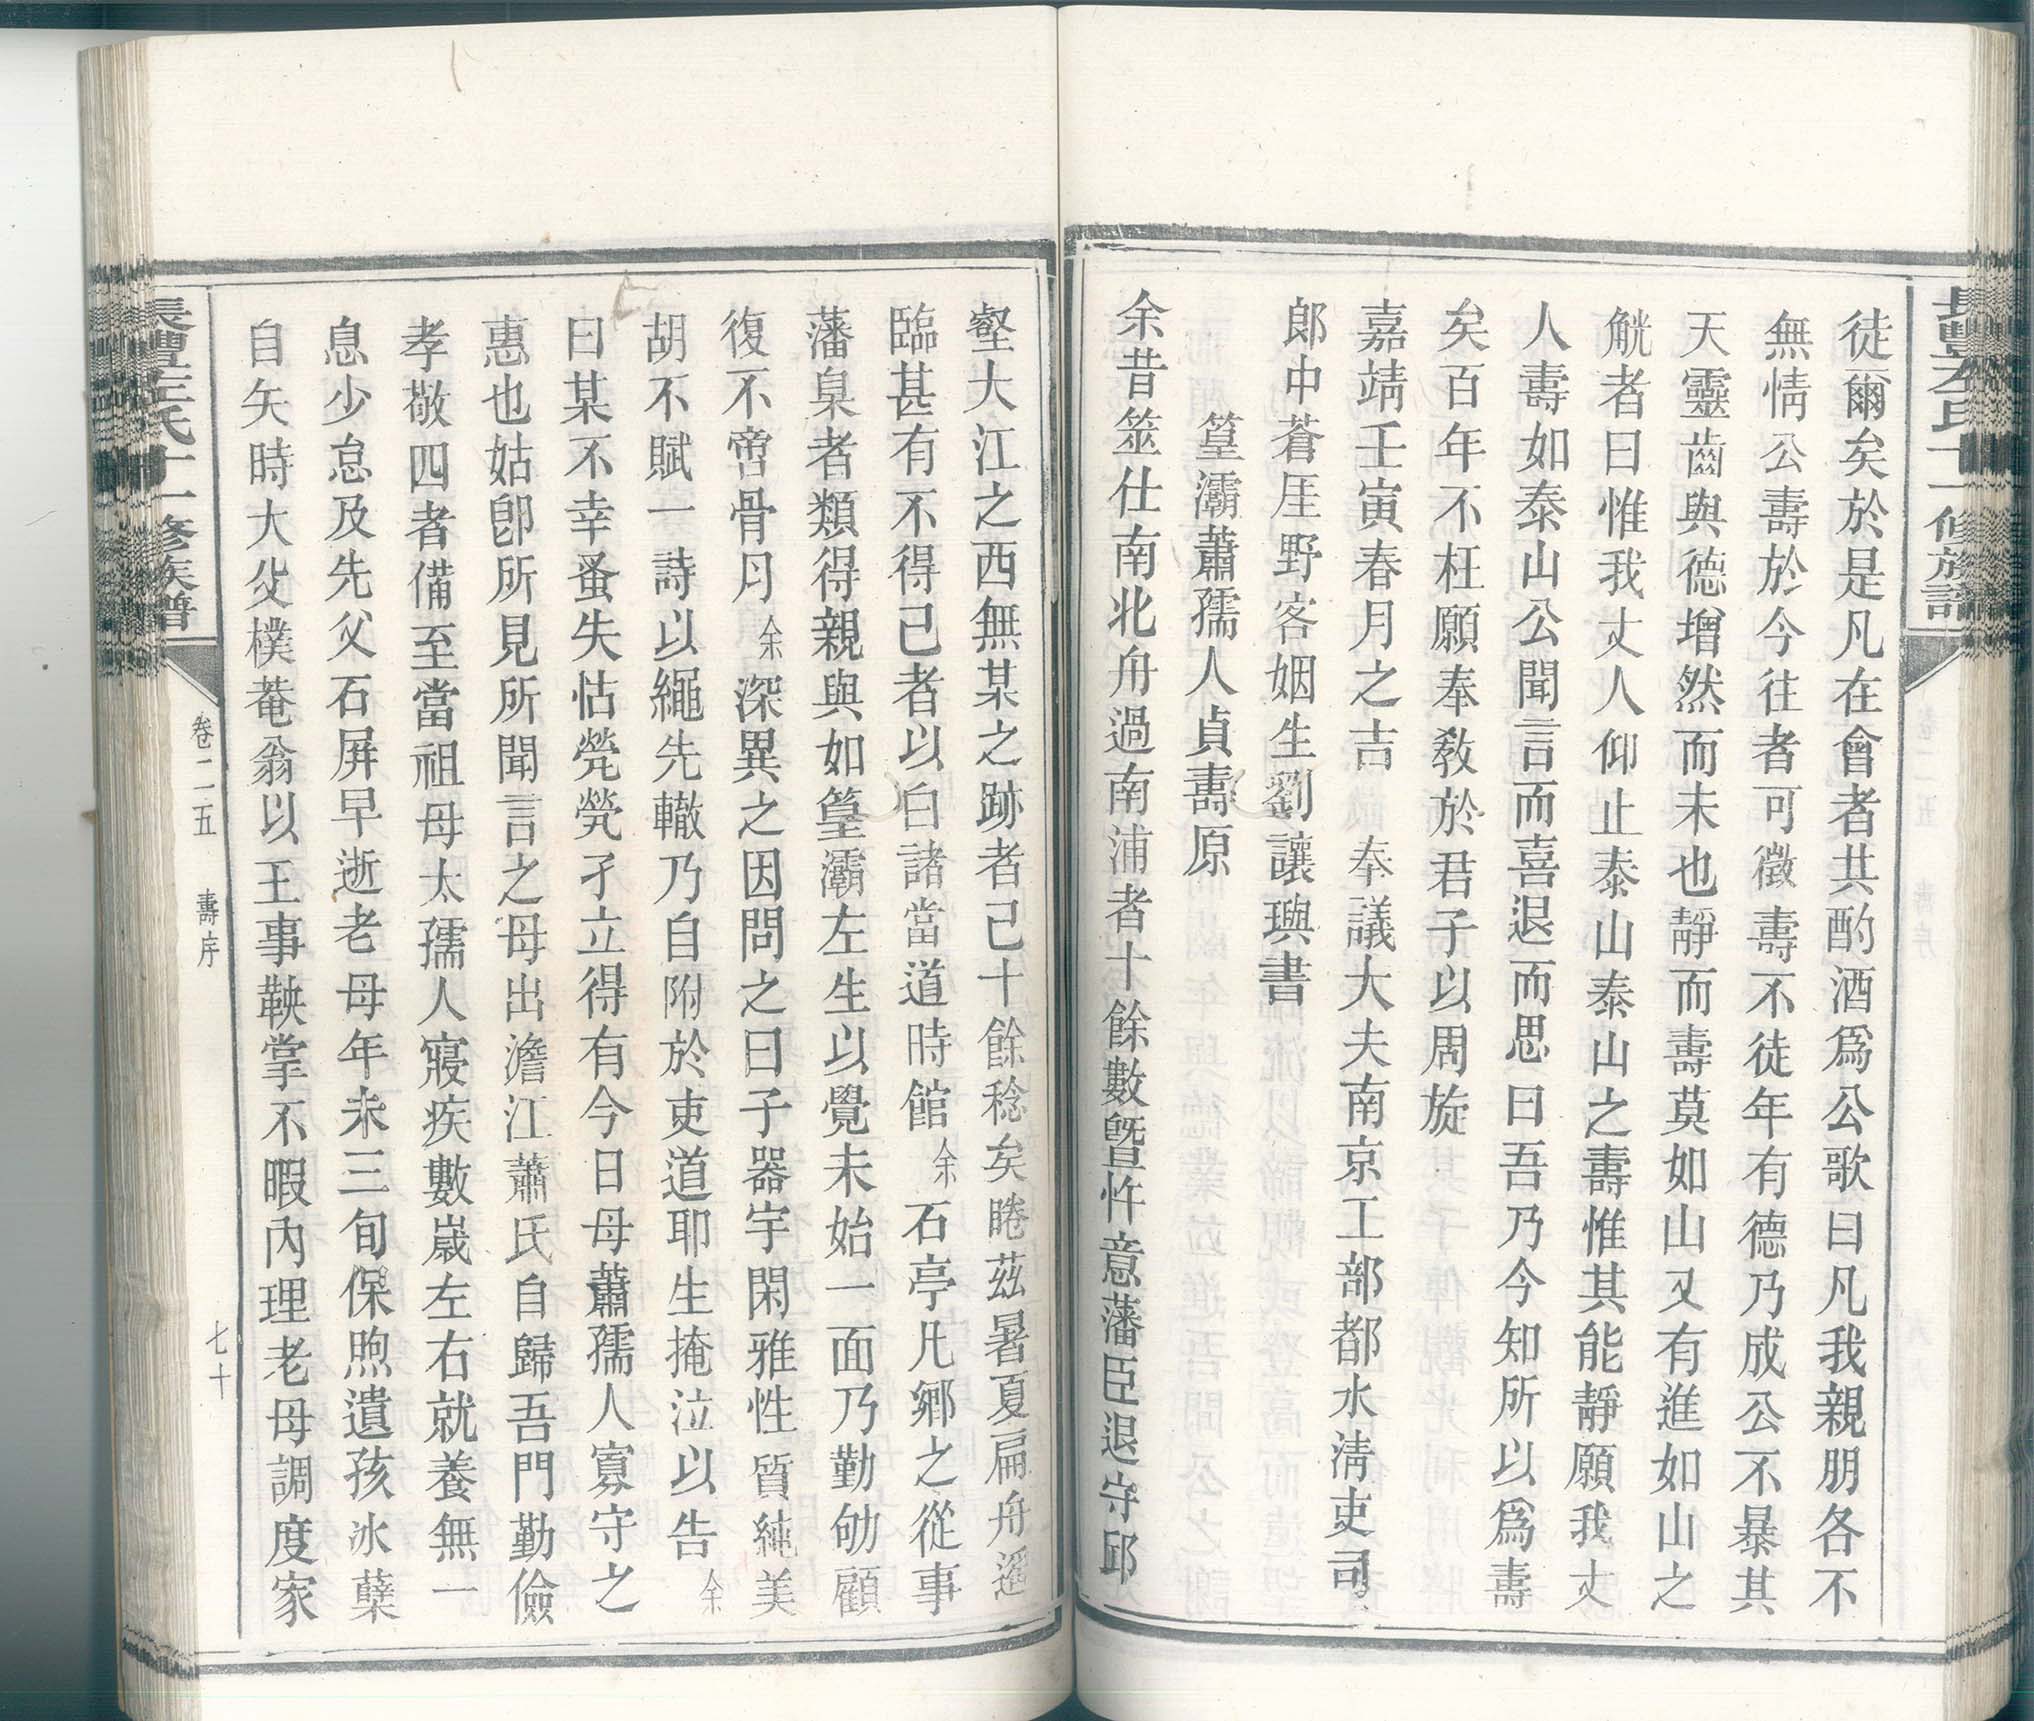 長豐左氏十一修族譜
徒爾矣於是凡在會者共酌酒為公歌曰凡我親朋各不
無情公壽於今往者可徵壽不徒年有德乃成公不暴其
天靈齒與德增然而未也靜而壽莫如山又有進如山之
觥者曰惟我丈人仰止泰山泰山之壽惟其能靜願我丈
人壽如泰山公聞言而喜退而思曰吾乃今知所以為壽
矣百年不枉願奉教於君子以周旋
嘉靖壬寅春月之吉 奉議大夫南京工部都水清吏司
郎中蒼厓野客姻生劉讓璵書
篁灞蕭孺人貞壽原
余昔筮仕南北舟過南浦者十餘數暨忤意藩臣退守邱
壑大江之西無某之跡者已十餘稔矣睠茲暑夏扁舟遥
臨甚有不得已者以白諸當道時館余石亭凡鄉之從事
藩臬者類得親與如篁灞左生以覺未始一面乃勤劬顧
復不啻骨月余深異之因問之曰子器宇閑雅性質純美
胡不賦一詩以繩先轍乃自附於吏道耶生掩泣以告余
曰某不幸蚤失怙煢煢孑立得有今日母蕭孺人寡守之
惠也姑卽所見所聞言之母出澹江蕭氏自歸吾門勤儉
孝敬四者備至當祖母太孺人寢疾數嵗左右就養無一
息少怠及先父石屏早逝老母年未三旬保煦遺孩氷蘖
自矢時大父樸菴翁以王事鞅掌不暇內理老母調度家
長豐左氏十一修族譜
卷二五 壽序 七十